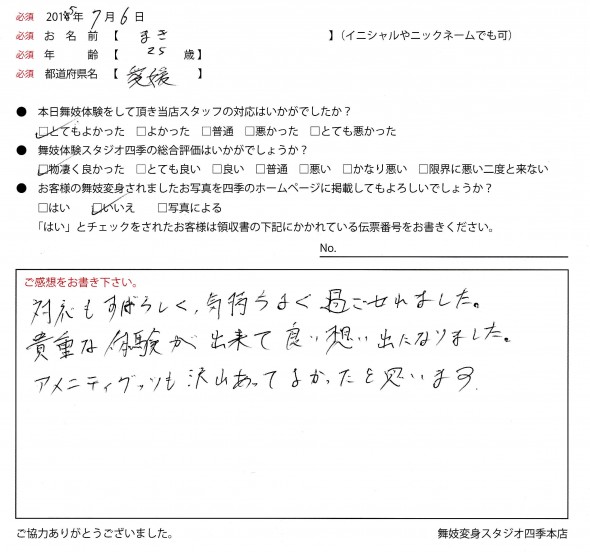 必須 2015年 7月 6日
必須 お名前【 まき 】(イニシャルやニックネームでも可)
必須 年齢【 25 歳】
必須 都道府県名【 愛媛 】
● 本日舞妓体験をして頂き当店スタッフの対応はいかがでしたか?
☑とてもよかった □よかった □普通 □悪かった □とても悪かった
● 舞妓体験スタジオ四季の総合評価はいかがでしょうか?
☑物凄く良かった □とても良い □良い □普通 □悪い □かなり悪い □限界に悪い二度と来ない
● お客様の舞妓変身されましたお写真を四季のホームページに掲載してもよろしいでしょうか?
□はい ☑いいえ □写真による
「はい」とチェックをされたお客様は領収書の下記にかかれている伝票番号をお書きください。
No.
ご感想をお書き下さい。
対応もすばらしく、気持うよく過ごせれました。
貴重な体験が出来て良い想い出になりました。
アメニティグッツも沢山あってよかったと思います。
ご協力ありがとうございました。 舞妓変身スタジオ四季本店